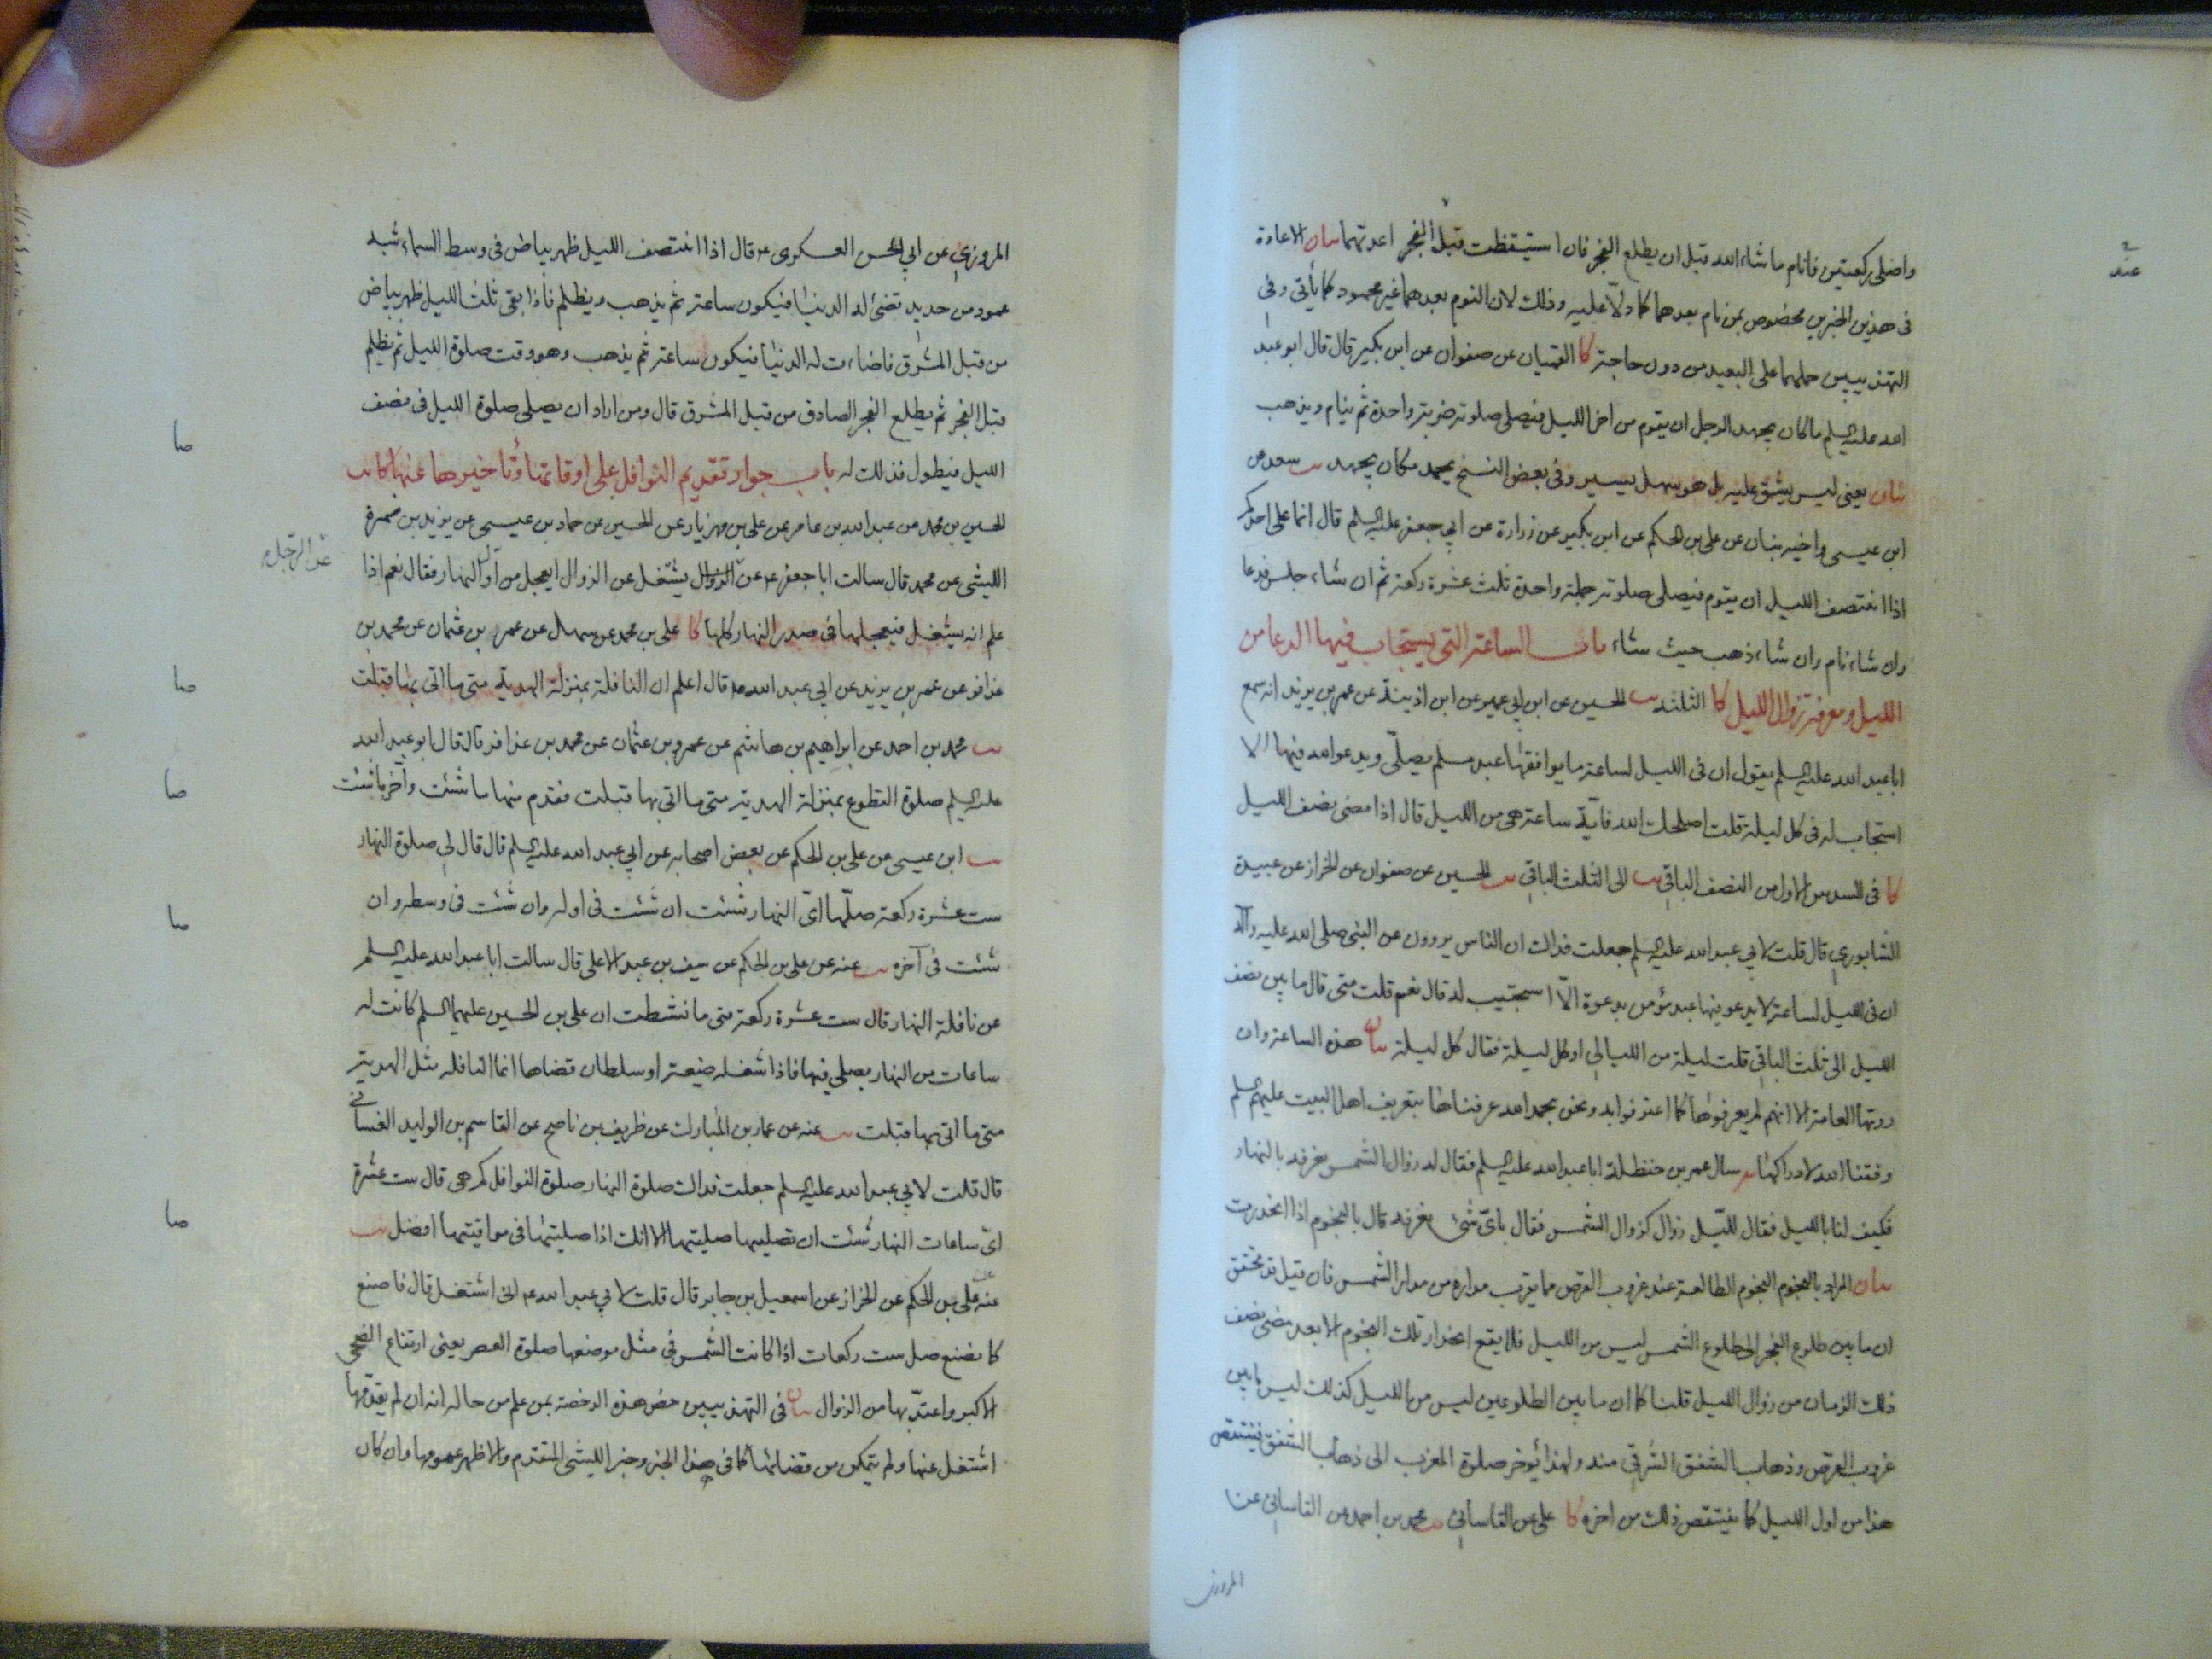 واصلى ركعتين فانام ما شاء الله قبل ان يطلع الفجر فان استيقظت قبل الفجر اعدتهما بيان الاعادة
عند
فى هذين الخبرين مخصوص بمن نام بعدهما كما دلّا عليه وذلك لان النوم بعدهما غير محمود كما يأتى وفى
التهذيبين حملهما على البعيد من دون حاجة كا القميان عن صفوان عن ابن بكير قال قال ابو عبد
الله عليه السلم ما كان يجهد الرجل ان يقوم من اخر الليل فيصلى صلوته ضربة واحدة ثم ينام ويذهب
بيان يعنى ليس يشق عليه بل هو سهل يسير وفى بعض النسخ يحمد مكان يجهد يب سعد عن
ابن عيسى واخيه بنان عن على بن الحكم عن ابن بكير عن زرارة عن ابى جعفر عليه السلم قال انما على احدكم
اذا انتصف الليل ان يقوم فيصلى صلوته جملة واحدة ثلث عشرة ركعة ثم ان شاء جلس فدعا
وان شاء نام وان شاء ذهب حيث شاء باب الساعة التى يستجاب فيها الدعا من
الليل ومعرفة زوال الليل كا الثلثه يب الحسين عن ابن ابى عمير عن ابن اذينة عن عمر بن يزيد انه سمع
ابا عبد الله عليه السلم يقول ان فى الليل لساعة ما يوافقها عبد مسلم يصلّى ويدعو الله فيها الا
استجاب له فى كل ليلة قلت اصلحك الله فايّة ساعة هى من الليل قال اذا مضى نصف الليل
كا فى السدس الاول من النصف الباقى يب الى الثلث الباقى يب الحسين عن صفوان عن الخراز عن عبيدة
الشابورى قال قلت لابى عبد الله عليه السلم جعلت فداك ان الناس يروون عن النبى صلى الله عليه واله
ان فى الليل لساعة لا يدعو فيها عبد مؤمن بدعوة الّا استجيب له قال نعم قلت متى قال ما بين نصف
الليل الى ثلث الباقى قلت ليلة من الليالى او كل ليلة فقال كل ليلة بيان هذه الساعة وان
روتها العامة الا انهم لم يعرفوها كما اعترفوا به ونحن بحمد الله عرفناها بتعريف اهل البيت عليهم السلم
وفقنا الله لادراكها يه سال عمر بن حنظلة ابا عبد الله عليه السلم فقال له زوال الشمس نعرفه بالنهار
فكيف لنا بالليل فقال للّيل زوال كزوال الشمس فقال باىّ شئ نعرفه قال بالنجوم اذا انحدرت
بيان المراد بالنجوم النجوم الطالعة عند غروب القرص مما يقرب مداره من مدار الشمس فان قيل قد تحقق
ان ما بين طلوع الفجر الى طلوع الشمس ليس من الليل فلا يقع انحدار تلك النجوم الا بعد مضى نصف
ذلك الزمان من زوال الليل قلنا كما ان ما بين الطلوعين ليس من الليل كذلك ليس ما بين
غروب القرص وذهاب الشفق الشرقى منه ولهذا يؤخر صلوة المغرب الى ذهاب الشفق فينتقص
هذا من اول الليل كما ينتقص ذلك من اخره كا على عن القاسانى يب محمد بن احمد عن القاسانى عن
المروزى
المروزى عن ابى الحسن العسكرى ع قال اذا انتصف الليل ظهر بياض فى وسط السماء شبه
عمود من حديد تضئ له الدنيا فيكون ساعة ثم يذهب ويظلم فاذا بقى ثلث الليل ظهر بياض
من قبل المشرق فاضاءت له الدنيا فيكون ساعة ثم يذهب وهو وقت صلوة الليل ثم يظلم
قبل الفجر ثم يطلع الفجر الصادق من قبل المشرق قال ومن اراد ان يصلى صلوة الليل فى نصف
صا
الليل فيطول فذلك له باب جواز تقديم النوافل على اوقاتها وتأخيرها عنها كا يب
الحسين بن محمد عن عبد الله بن عامر عن على بن مهزيار عن الحسين عن حماد بن عيسى عن يزيد بن ضمرة
عن الرجل
الليثى عن محمد قال سالت ابا جعفر ع عن الزوال يشتغل عن الزوال ايعجل من اول النهار فقال نعم اذا
علم انه يشتغل فيعجلها فى صدر النهار كلها كا على بن محمد عن سهل عن عمرو بن عثمان عن محمد بن
صا
عذافر عن عمر بن يزيد عن ابى عبد الله ع قال اعلم ان النافلة بمنزلة الهدية متى ما اتى بها قبلت
يب محمد بن احمد عن ابراهيم بن هاشم عن عمرو بن عثمان عن محمد بن عذافر قال قال ابو عبد الله
صا
عليه السلم صلوة التطوع بمنزلة الهدية متى ما اتى بها قبلت فقدم منها ما شئت واخر ما شئت
يب ابن عيسى عن على بن الحكم عن بعض اصحابه عن ابى عبد الله عليه السلم قال قال لى صلوة النهار
صا
ست عشرة ركعة صلّها اىّ النهار شئت ان شئت فى اوله وان شئت فى وسطه وان
شئت فى آخره يب عنه عن على بن الحكم عن سيف بن عبد الاعلى قال سالت ابا عبد الله عليه السلم
عن نافلة النهار قال ست عشرة ركعة متى ما نشطت ان على بن الحسين عليهما السلم كانت له
ساعات من النهار يصلى فيها فاذا شغله ضيعة او سلطان قضاها انما النافلة مثل الهدية
متى ما اتى بها قبلت يب عنه عن عمار بن المبارك عن ظريف بن ناصح عن القاسم بن الوليد الغسانى
قال قلت لابى عبد الله عليه السلم جعلت فداك صلوة النهار صلوة النوافل كم هى قال ست عشرة
صا
اىّ ساعات النهار شئت ان تصليها صليتها الا انك اذا صليتها فى مواقيتها افضل يب
عنه عن على بن الحكم عن الخراز عن اسمعيل بن جابر قال قلت لابى عبد الله ع انى اشتغل قال فاصنع
كما نصنع صل ست ركعات اذا كانت الشمس فى مثل موضعها صلوة العصر يعنى ارتفاع الضحى
الاكبر واعتدّ بها من الزوال بيان فى التهذيبين خص هذه الرخصة بمن علم من حاله انه ان لم يقدّمها
اشتغل عنها ولم يتمكن من قضائها كما فى هذا الخبر وخبر الليثى المتقدم والاظهر عمومها وان كان